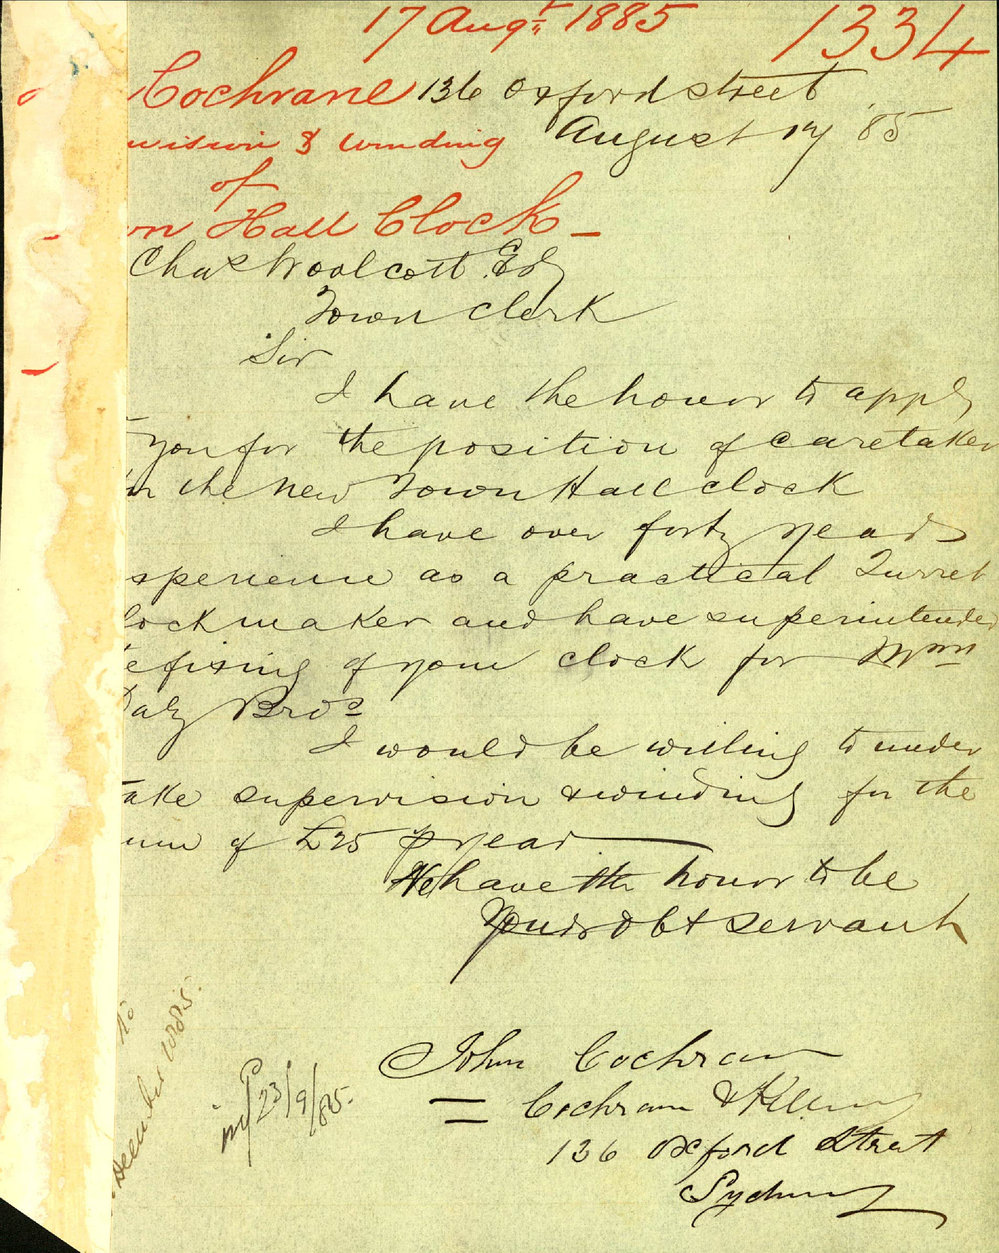 17 Augt. 1885
1334
Cochrane
136 Oxford street
August 17 '85
vision & winding
of
wn Hall Clock –
Chas Woolcott Esq
Town Clerk
Sir
I have the honor to apply
you for the position of caretaker
the new Town Hall clock
I have over forty years
xperience as a practical Turret
lockmaker and have superintended
efixing of your clock for Messrs
Daly Bros
I would be willing to under
take supervision & winding for the
um of £25 p year
have the honor to be
Your obt servant
John Cochram
= Cochram &
136 Oxford Street
Sydney
to
December 1885.
23/9/85.